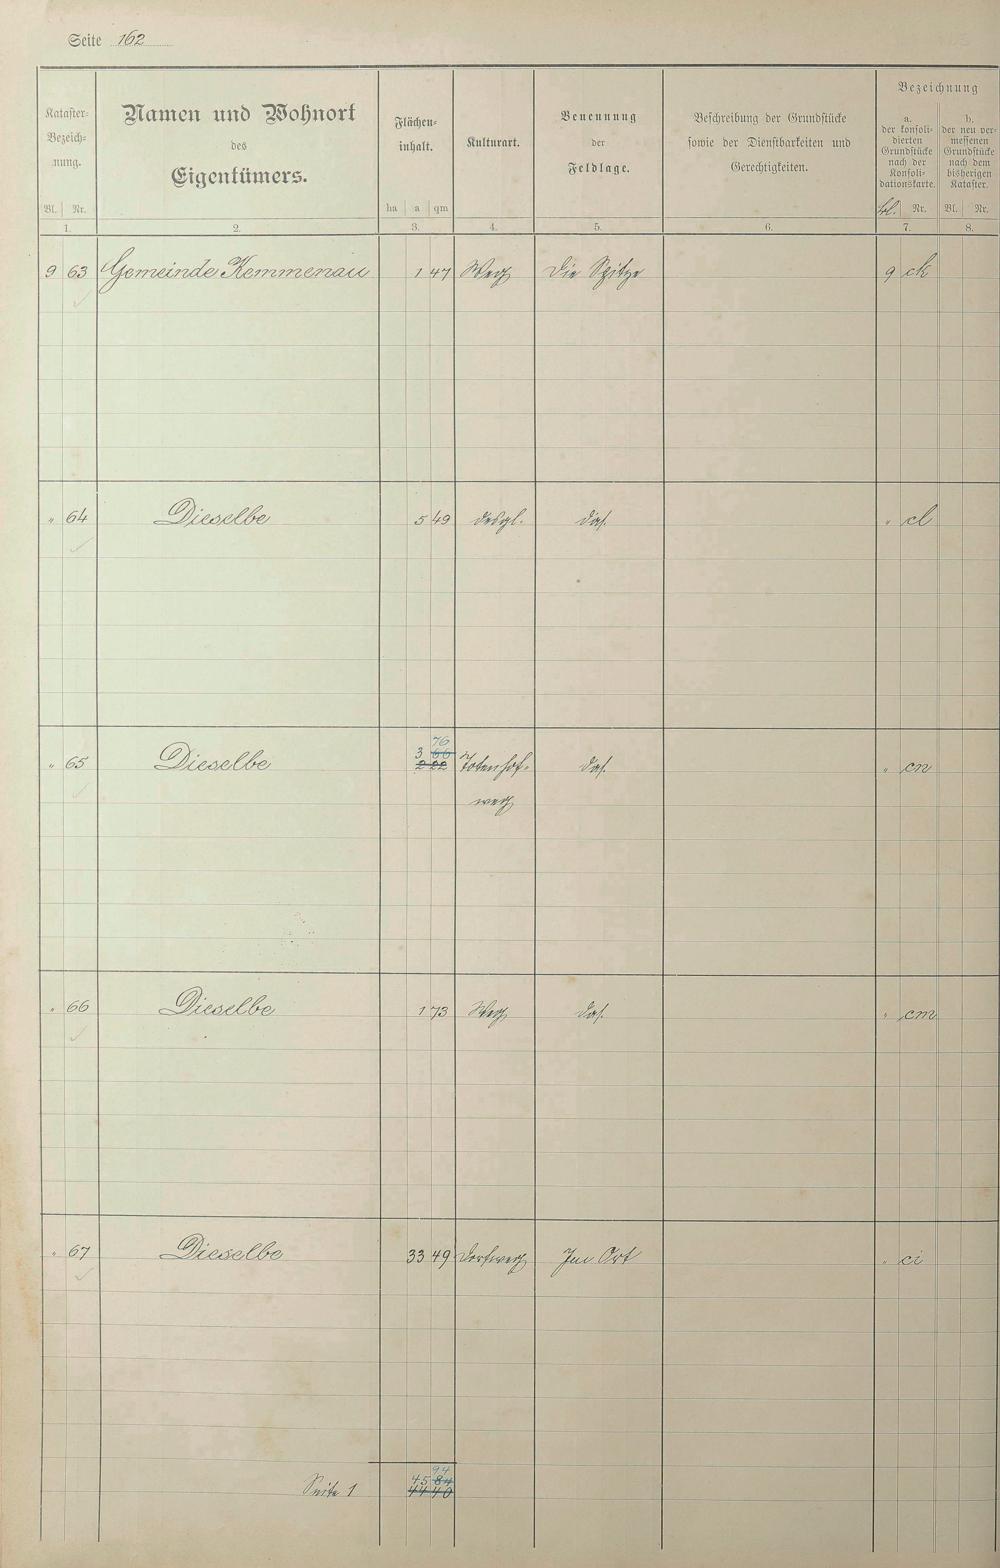 Seite 162
Kataster-
Bezeich-
nung.
Bl. Nr.
Namen und Wohnort
des
Eigentümers.
Flächen-
inhalt.
ha a qm
Kulturart.
Benennung
der
Feldlage.
Beschreibung der Grundstücke
sowie der Dienstbarkeiten und
Gerechtigkeiten.
Bezeichnung
a.
der konsoli-
dierten
Grundstücke
nach der
Konsoli-
dationskarte.
Bl. Nr.
b.
der neu ver-
messenen
Grundstücke
nach dem
bisherigen
Kataster.
Bl. Nr.
1. 2. 3. 4. 5. 6. 7. 8.
9 63 Gemeinde Kemmenau 1 47 Weg Die Spitze 9 ck
" 64 Dieselbe 5 49 desgl. das. " cl
76
3 66
" 65 Dieselbe 2 22 Totenhof- das. " cn
weg
" 66 Dieselbe 1 73 Weg das. " cm
" 67 Dieselbe 33 49 Dorfweg Im Ort " ci
94
45 84
Seite 1 44 40